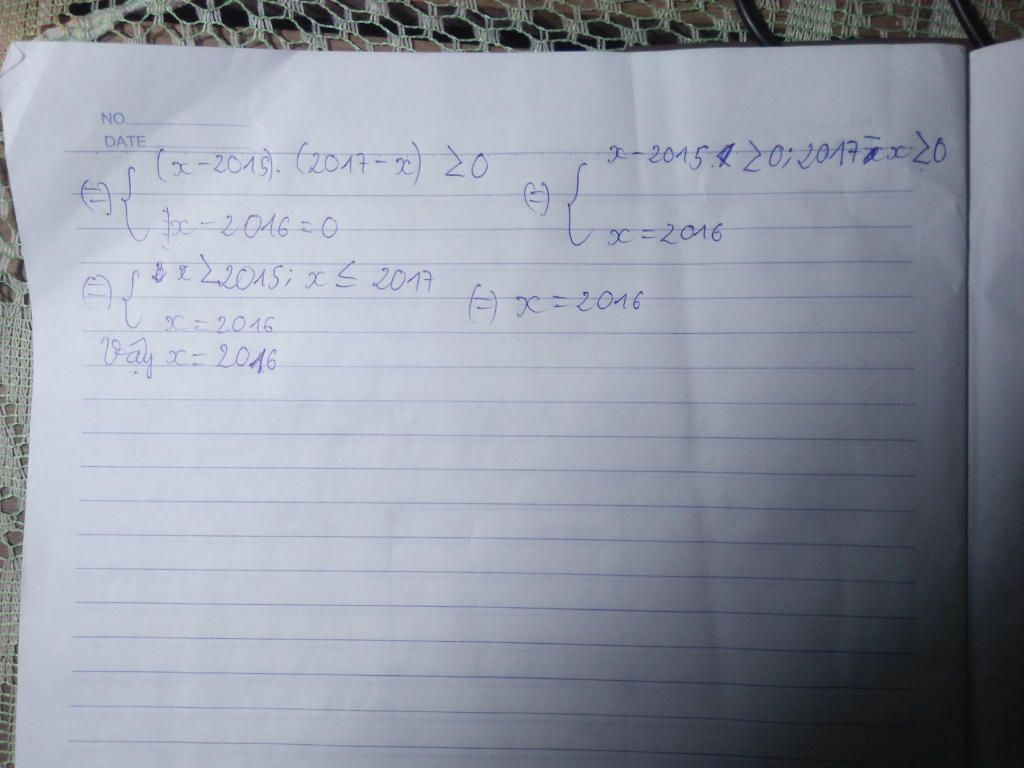 NO
DATE
(x - 2015). (2017 - x) ≥ 0
(=) {
x - 2016 = 0
x - 2015 ≥ 0; 2017 - x ≥ 0
(=) {
x = 2016
x ≥ 2015; x ≤ 2017
(=) {
x = 2016
(=) x = 2016
Vậy x = 2016